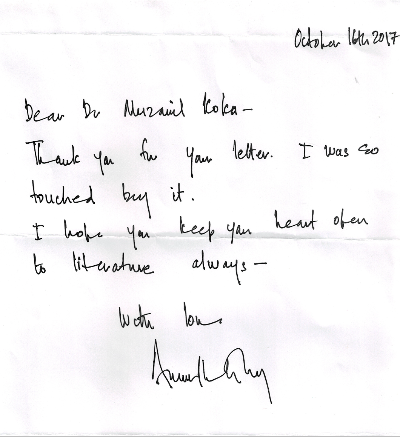 October 16th 2017
Dear Dr Muzamil Koka –
Thank you for your letter. I was so
touched by it.
I hope you keep your heart open
to literature always –
With love